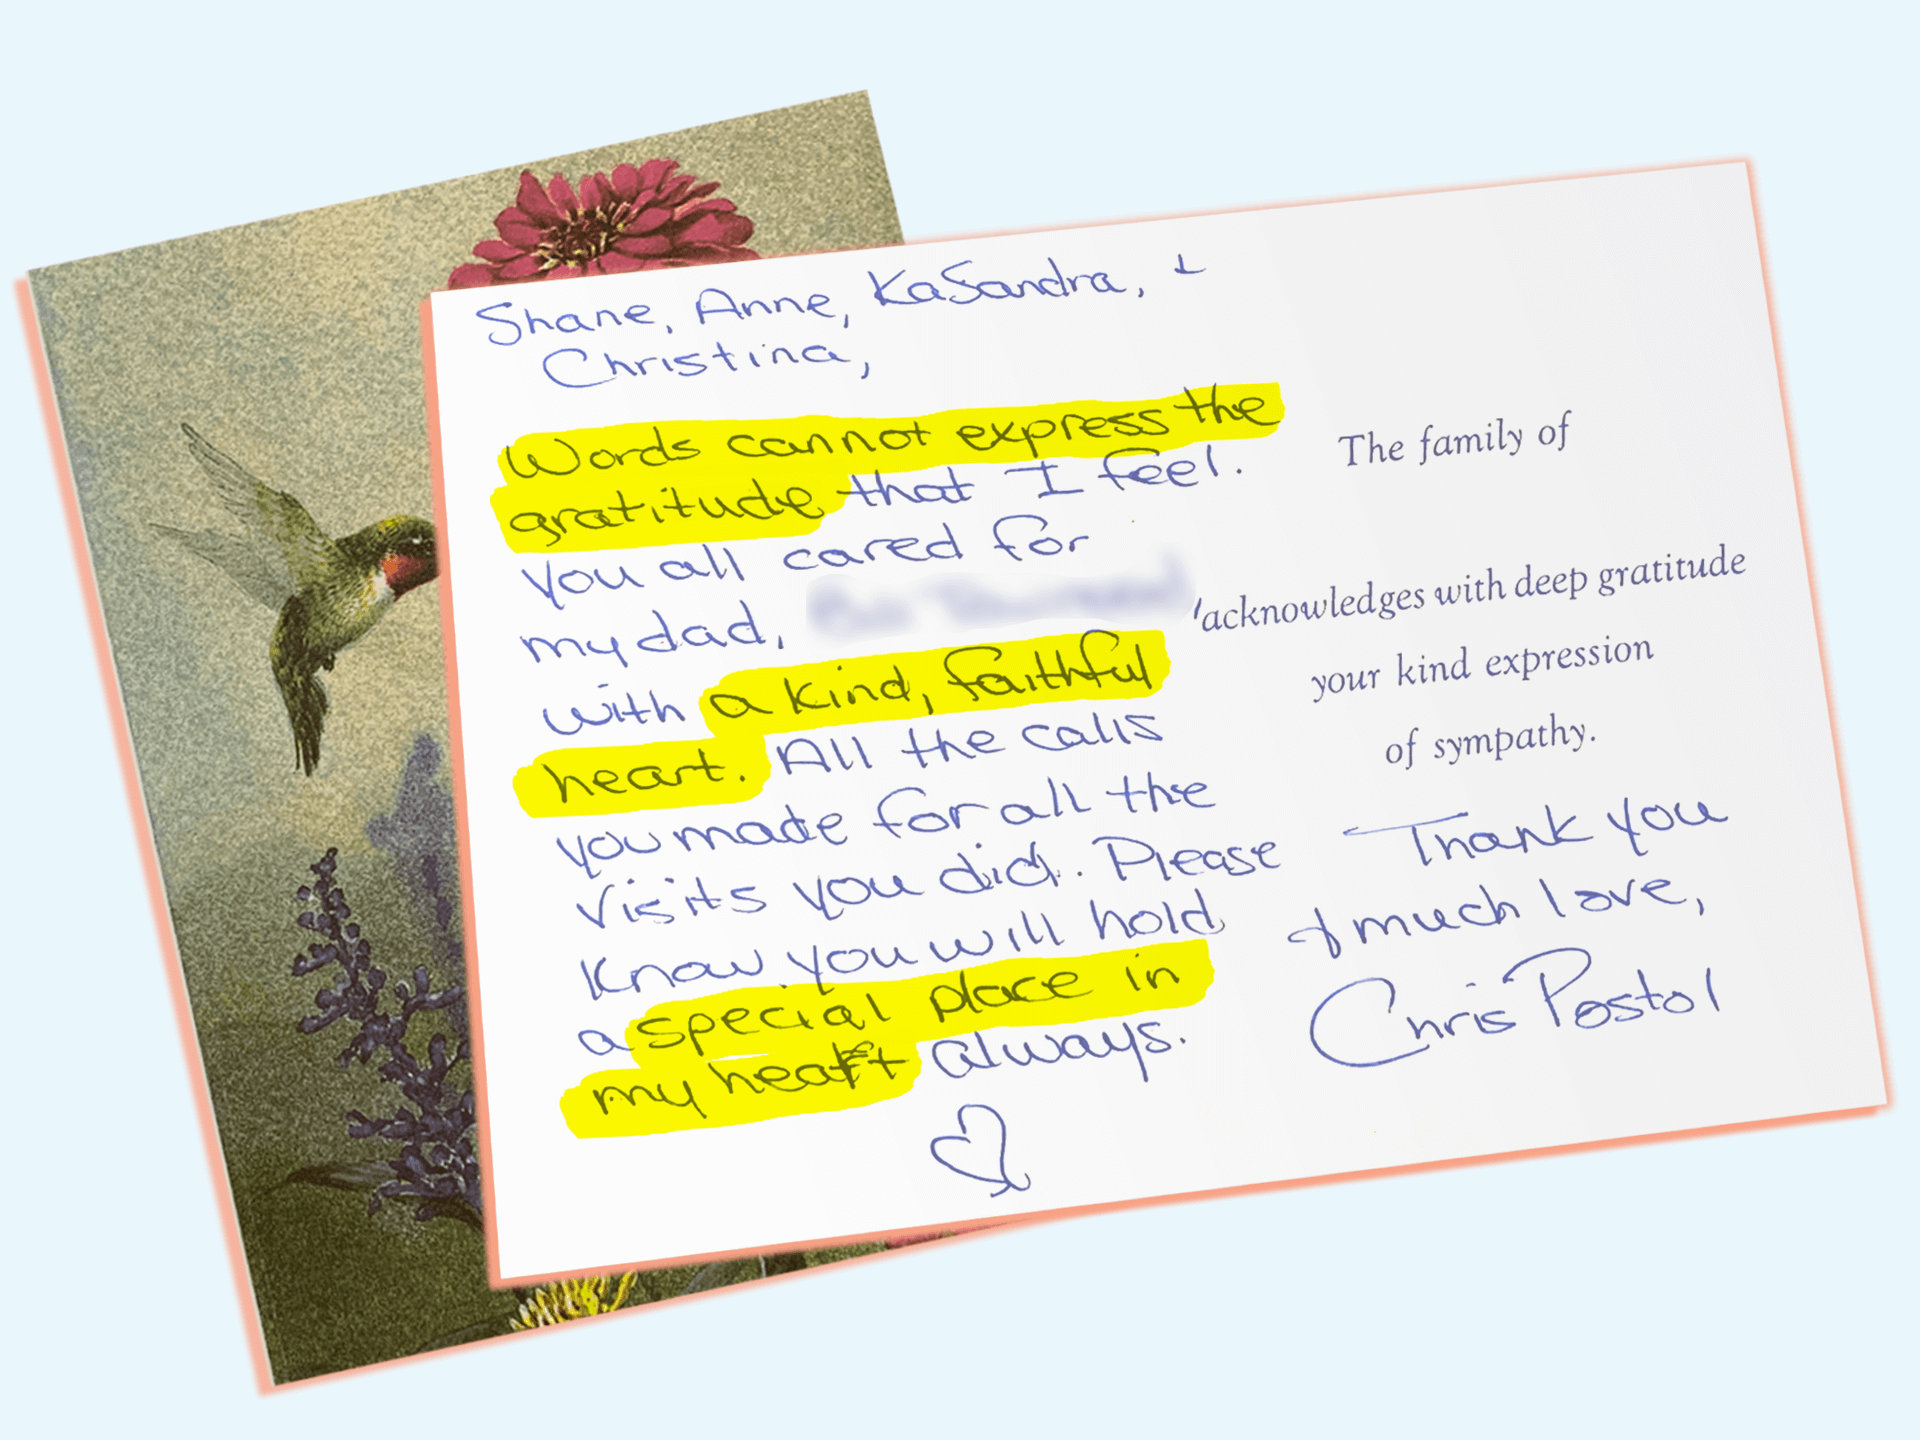 Shane, Anne, KaSandra, +
Christina,
Words cannot express the
gratitude that I feel.
You all cared for
my dad,
with a kind, faithful
heart. All the calls
you made for all the
visits you did. Please
know you will hold
a special place in
my heart always.
The family of
acknowledges with deep gratitude
your kind expression
of sympathy.
Thank you
& much love,
Chris Postol